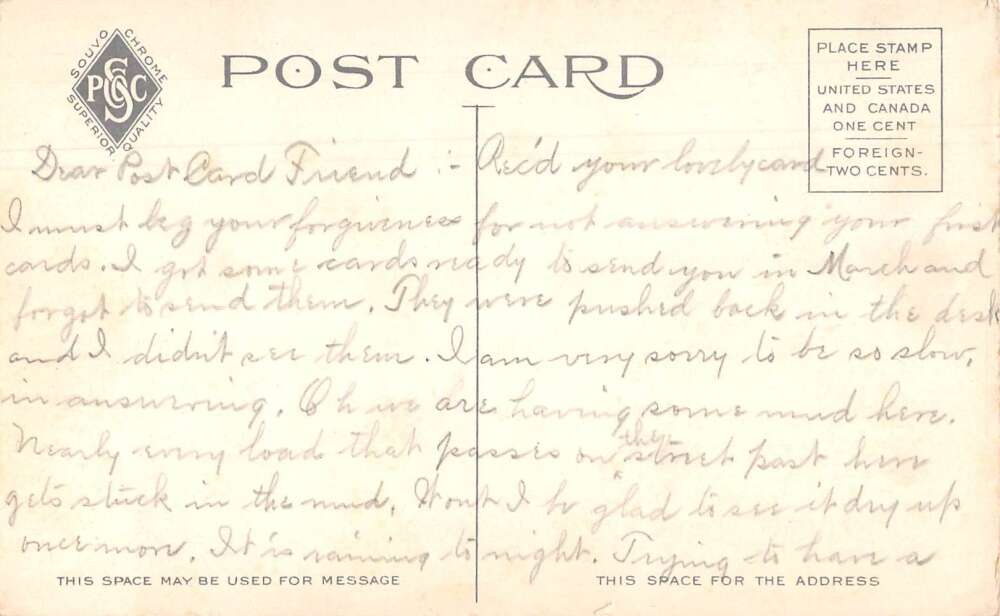 SOUVO CHROME
PCSC
SUPERIOR QUALITY
POST CARD
PLACE STAMP
HERE
UNITED STATES
AND CANADA
ONE CENT
FOREIGN-
TWO CENTS.
Dear Post Card Friend :- Rec'd your lovely card
I must beg your forgiveness for not answering your first
cards. I got some cards ready to send you in March and
forgot to send them. They were pushed back in the desk
and I didn't see them. I am very sorry to be so slow,
in answering. Oh we are having some mud here.
Nearly every load that passes on the street past here
gets stuck in the mud. Wont I be glad to see it dry up
once more. It is raining to night. Trying to have a
THIS SPACE MAY BE USED FOR MESSAGE
THIS SPACE FOR THE ADDRESS